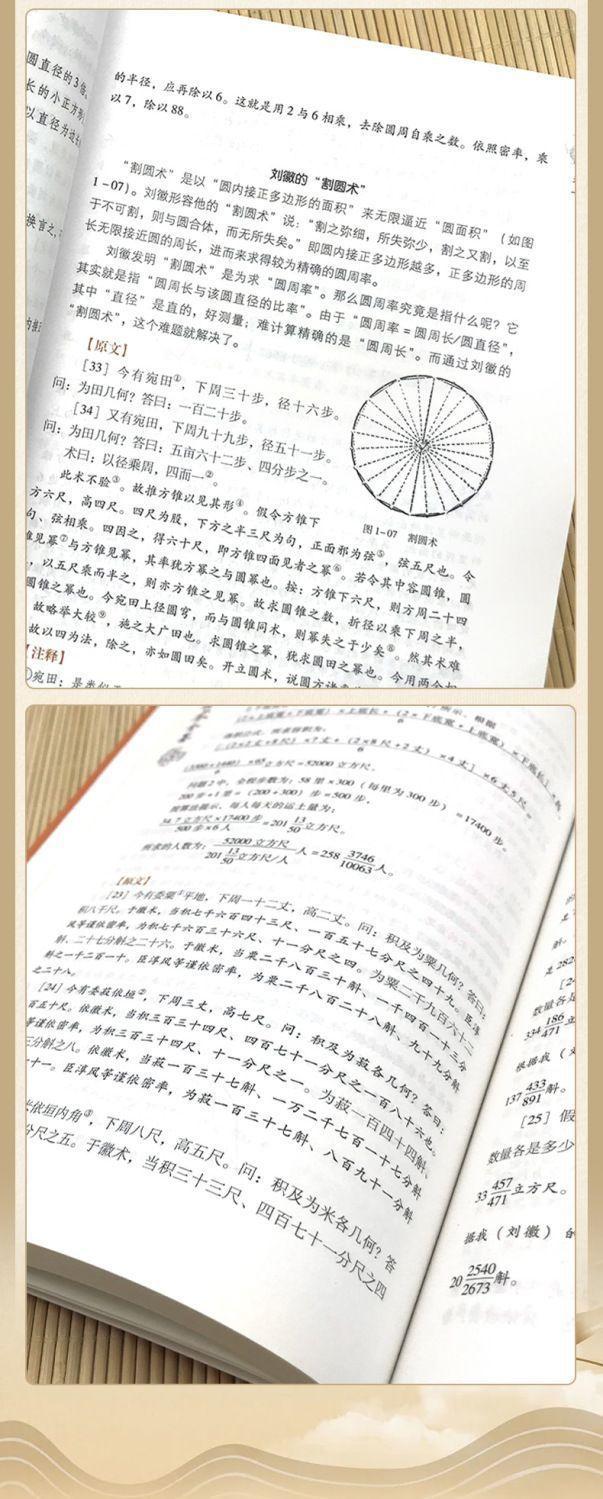 圆直径的3倍
长的小正方形
以直径为边长
换言之
的半径，应再除以6。这就是用2与6相乘，去除圆周自乘之数。依照密率，乘
以7，除以88。
刘徽的“割圆术”
“割圆术”是以“圆内接正多边形的面积”来无限逼近“圆面积”（如图
1-07）。刘徽形容他的“割圆术”说：“割之弥细，所失弥少，割之又割，以至
于不可割，则与圆合体，而无所失矣。”即圆内接正多边形越多，正多边形的周
长无限接近圆的周长，进而来求得较为精确的圆周率。
刘徽发明“割圆术”是为求“圆周率”。那么圆周率究竟是指什么呢？它
其实就是指“圆周长与该圆直径的比率”。由于“圆周率=圆周长/圆直径”，
其中“直径”是直的，好测量；难计算精确的是“圆周长”。而通过刘徽的
“割圆术”，这个难题就解决了。
【原文】
[33] 今有宛田①，下周三十步，径十六步。
问：为田几何？答曰：一百二十步。
[34] 又有宛田，下周九十九步，径五十一步。
问：为田几何？答曰：五亩六十二步、四分步之一。
术曰：以径乘周，四而一②。
图1-07 割圆术
此术不验③。故推方锥以见其形④。假令方锥下
方六尺，高四尺。四尺为股，下方之半三尺为句，正面邪为弦⑤，弦五尺也。令
句、弦相乘。四因之，得六十尺，即方锥四面见者之幂⑥。若令其中容圆锥，圆
锥见幂⑦与方锥见幂，其率犹方幂之与圆幂也。按：方锥下六尺，则方周二十四
，以五尺乘而半之，则亦方锥之见幂。故求圆锥之数，折径以乘下周之半，
圆锥之幂也。今宛田上径圆穹，而与圆锥同术，则幂失之于少矣⑧。然其术难
故略举大较⑨，施之大广田也。求圆锥之幂，犹求圆田之幂也。今用两全相
故以四为法，除之，亦如圆田矣。开立圆术，说圆方诸
【注释】
①宛田：是类似
6 立方尺=52000立方尺。
问题2中，全程步数为：58里×300（每里为300步）=17400步。
200步+1里=（200+300）步=500步，
按算法提示，每人每天的运土量为：
34.7立方尺×17400步 / 500步×6人 =201 13/50 立方尺。
所求的人数为：52000立方尺 / 201 13/50 立方尺/人 人=258 3746/10063 人。
【原文】
[23] 今有委粟①平地，下周一十二丈，高二丈。问：积及为粟几何？答曰：
积八千尺。于徽术，当积七千六百四十三尺、一百五十七分尺之四十九。臣淳
风等谨依密率，为积七千六百三十六尺、十一分尺之四。为粟二千九百六十二
斛、二十七分斛之二十六。于徽术，当粟二千八百三十斛、一千四百一十三分
斛之一千二百一十。臣淳风等谨依密率，为粟二千八百二十八斛、九十九分斛
之二十八。
[24] 今有委菽依垣②，下周三丈，高七尺。问：积及为菽各几何？答曰：
百五十尺。依徽术，当积三百三十四尺、四百七十一分尺之一百八十六也。
等谨依密率，为积三百三十四尺、十一分尺之一。为菽一百四十四斛、
三分斛之八。依徽术，当菽一百三十七斛、一万二千七百一十七分斛
十一。臣淳风等谨依密率，为菽一百三十七斛、八百九十一分斛
米依垣内角③，下周八尺，高五尺。问：积及为米各几何？答
分尺之五。于徽术，当积三十三尺、四百七十一分尺之四
斛。
是282
数量各是
334 186/471 立
根据我（
137 433/891 斛。
[25] 假
数量各是多少
33 457/471 立方尺。
据我（刘徽）的
20 2540/2673 斛。